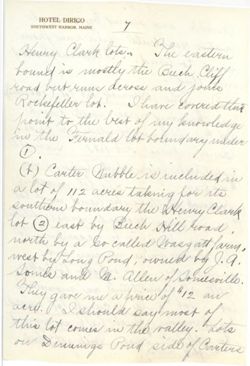 HOTEL DIRIGO
SOUTHWEST HARBOR, MAINE
7
Henry Clark lots. The eastern
bound is mostly the Beech Cliff
road but runs across and joins
Rockefeller lot. I have covered this
point to the best of my knowledge
in the Fernald lot boundary under
①.
(4) Carter Nubble is included in
a lot of 112 acres taking for its
southern boundary the Henry Clark
lot ② east by Beech Hill road,
north by a so called Wasgatt farm,
west by Long Pond, owned by J. A.
Somes and M. Allen of Somesville.
They gave me a price of $12 an
acre. I should say most of
this lot comes in the valley. Lots
on Dennings Pond side of Carters